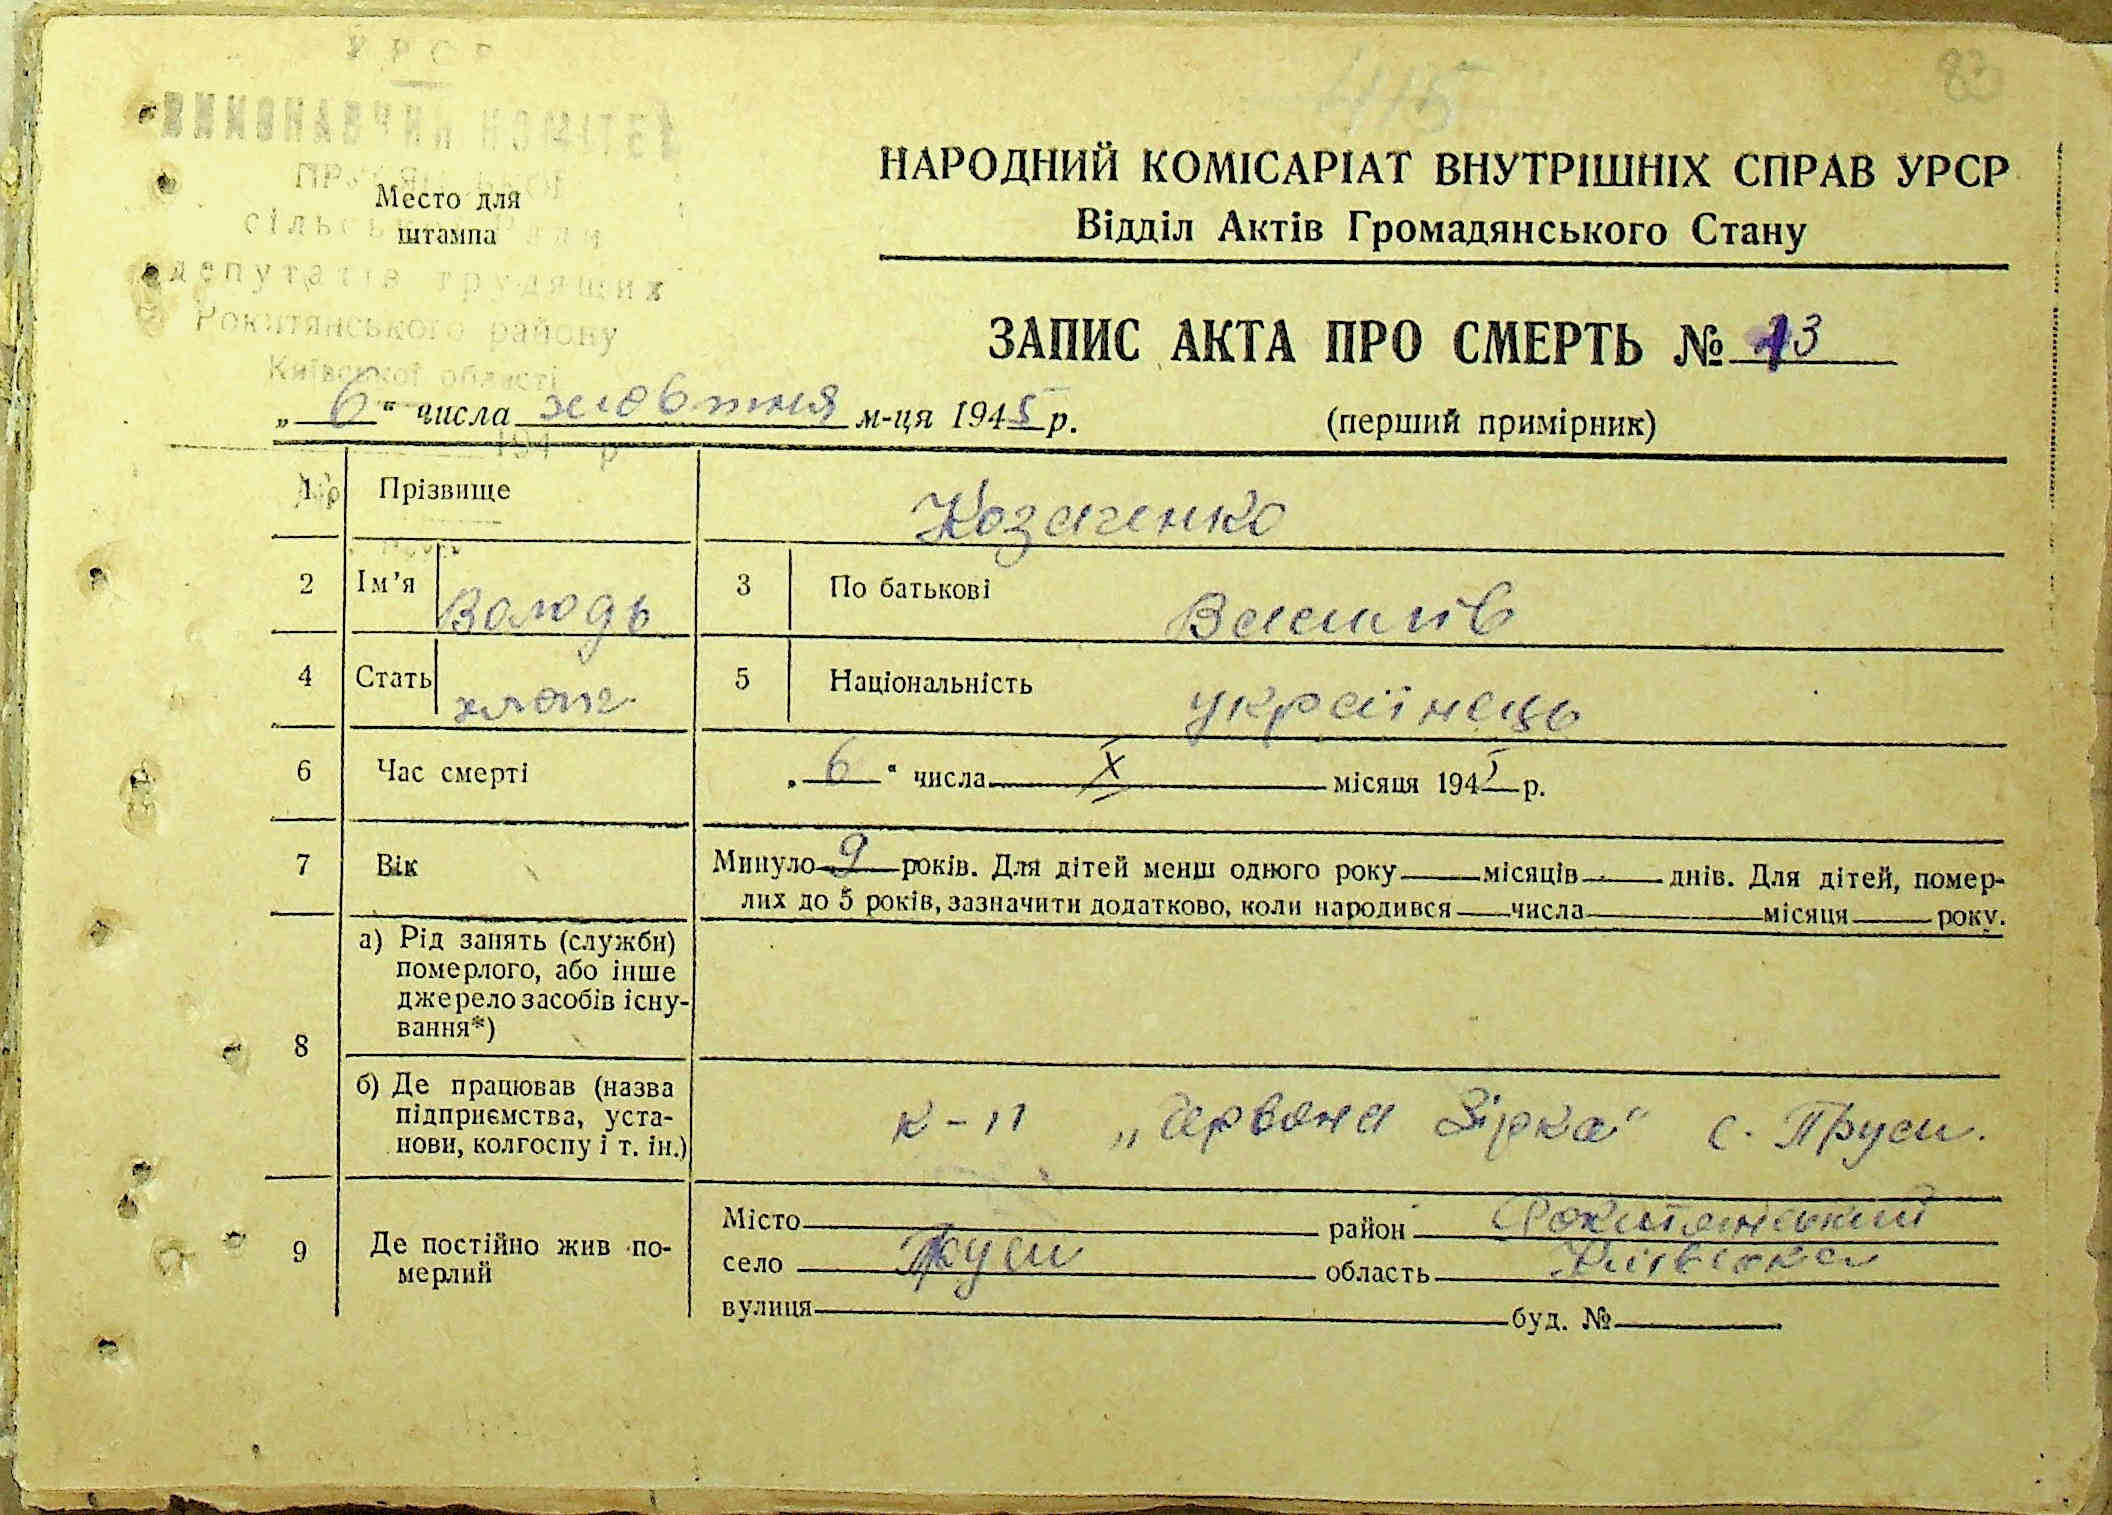 У Р С Р
415
83
ВИКОНАВЧИЙ КОМІТЕТ
Место для
штампа
сільської Ради
депутатів трудящих
Рокитянського району
Київської області
194 р
НАРОДНИЙ КОМІСАРІАТ ВНУТРІШНІХ СПРАВ УРСР
Відділ Актів Громадянського Стану
ЗАПИС АКТА ПРО СМЕРТЬ № 13
„ 6 “ числа жовтня м-ця 1945 р.
(перший примірник)
1 Прізвище Козаченко
2 Ім’я Володь 3 По батькові Василів
4 Стать хлопч. 5 Національність українець
6 Час смерті „ 6 “ числа X місяця 1945 р.
7 Вік Минуло 9 років. Для дітей менш одного року місяців днів. Для дітей, помер-
лих до 5 років, зазначити додатково, коли народився числа місяця року.
8 а) Рід занять (служби)
померлого, або інше
джерело засобів існу-
вання*)
б) Де працював (назва
підприємства, уста-
нови, колгоспу і т. ін.)
к-п „Червона Зірка“ с. Пруси.
9 Де постійно жив по-
мерлий
Місто район Рокитянський
село Пруси область Київська
вулиця буд. №